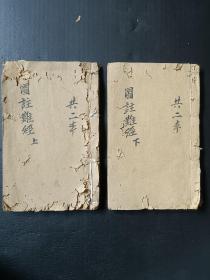 圖註難經上
共二本
圖註難經下
共二本